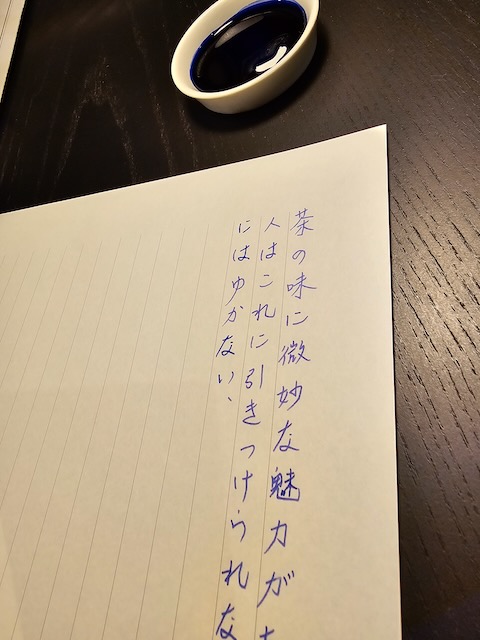 茶の味に微妙な魅力が
人はこれに引きつけられな
にはゆかない、